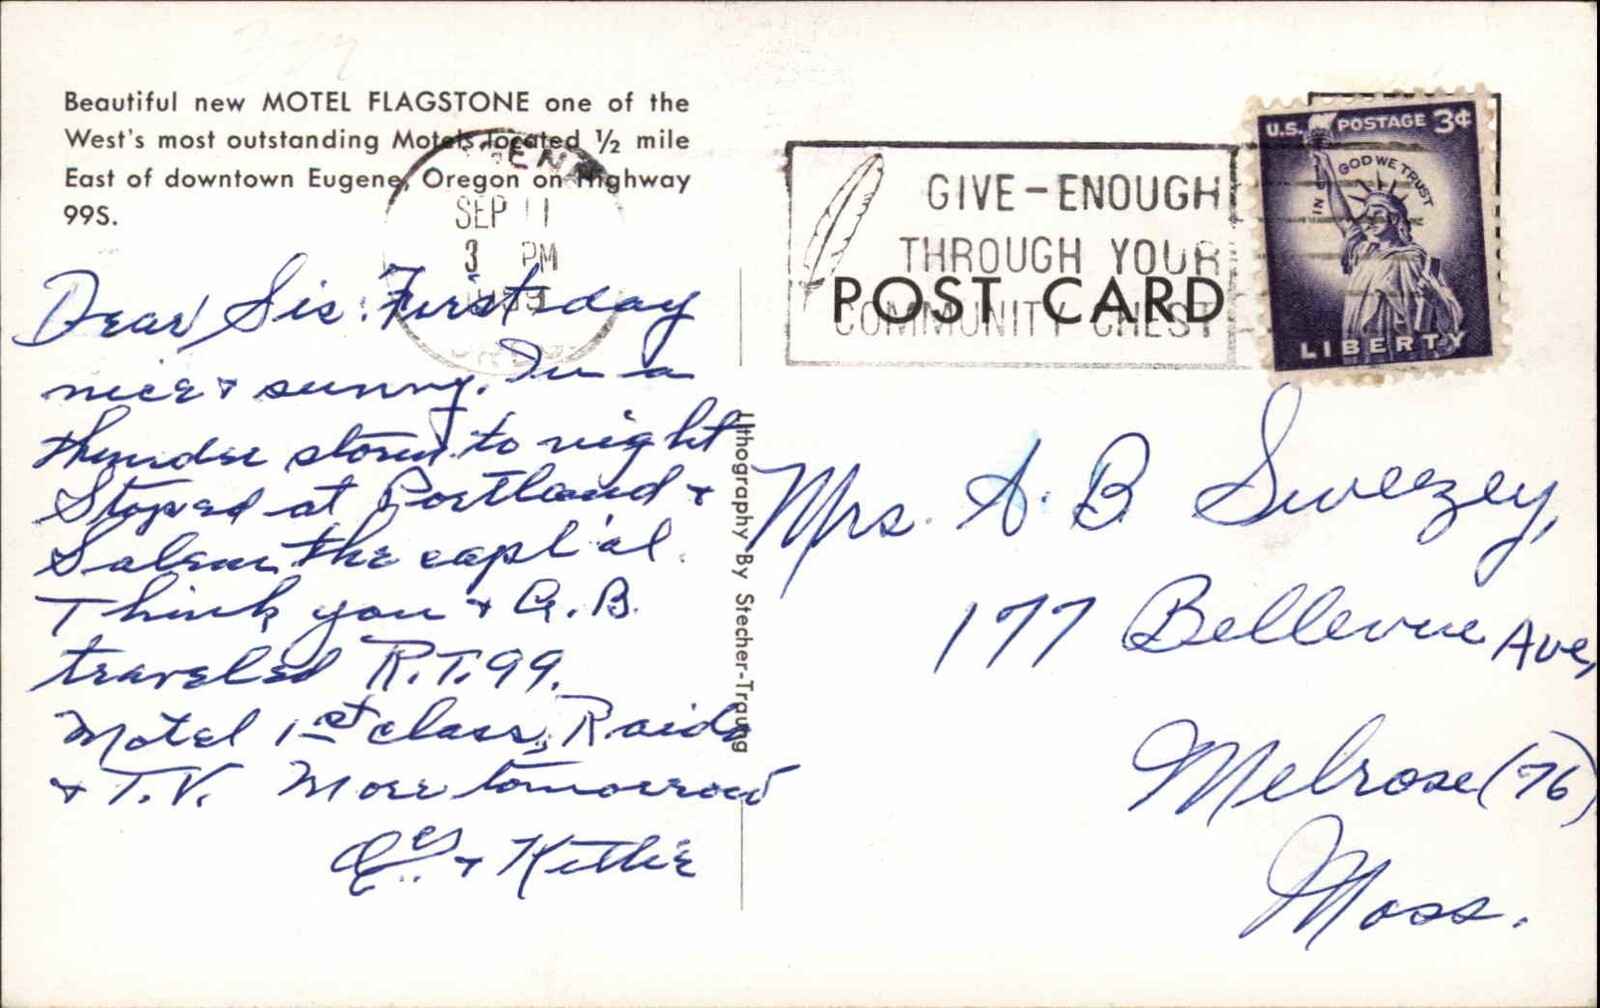 Beautiful new MOTEL FLAGSTONE one of the
West's most outstanding Motels, located ½ mile
East of downtown Eugene, Oregon on Highway
99S.
SEP 11
3 PM
GIVE-ENOUGH
THROUGH YOUR
COMMUNITY CHEST
POST CARD
U.S. POSTAGE 3¢
IN GOD WE TRUST
LIBERTY
Dear Sis: First day
nice & sunny. In a
thunder storm to night
Stoped at Portland &
Salem the capt'al.
Think you & G.B.
traveled R.T. 99.
Motel 1st class, Raido
& T.V. More tomorrow
& Kettie
Lithography By Stecher-Traung
Mrs. A. B Sweezey,
177 Bellevue Ave,
Melrose (76)
Mass.